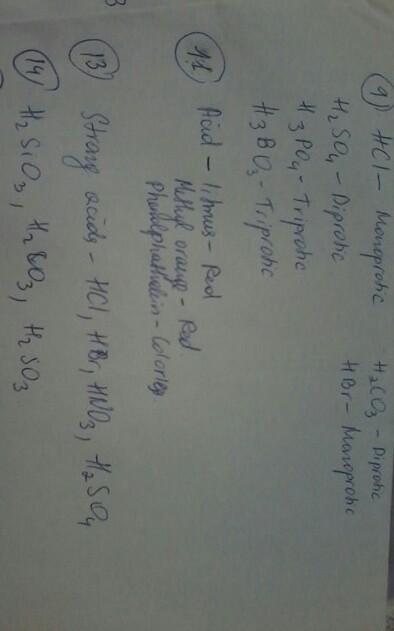 9) HCl - Monoprotic
H2SO4 - Diprotic
H3PO4 - Triprotic
H3BO3 - Triprotic
H2CO3 - Diprotic
HBr - Monoprotic
11 Acid - litmus - Red
Methyl orange - Red.
Phenolphathalin - Colorless.
13 Strong acids - HCl, HBr, HNO3, H2SO4
14 H2SiO3, H2CO3, H2SO3